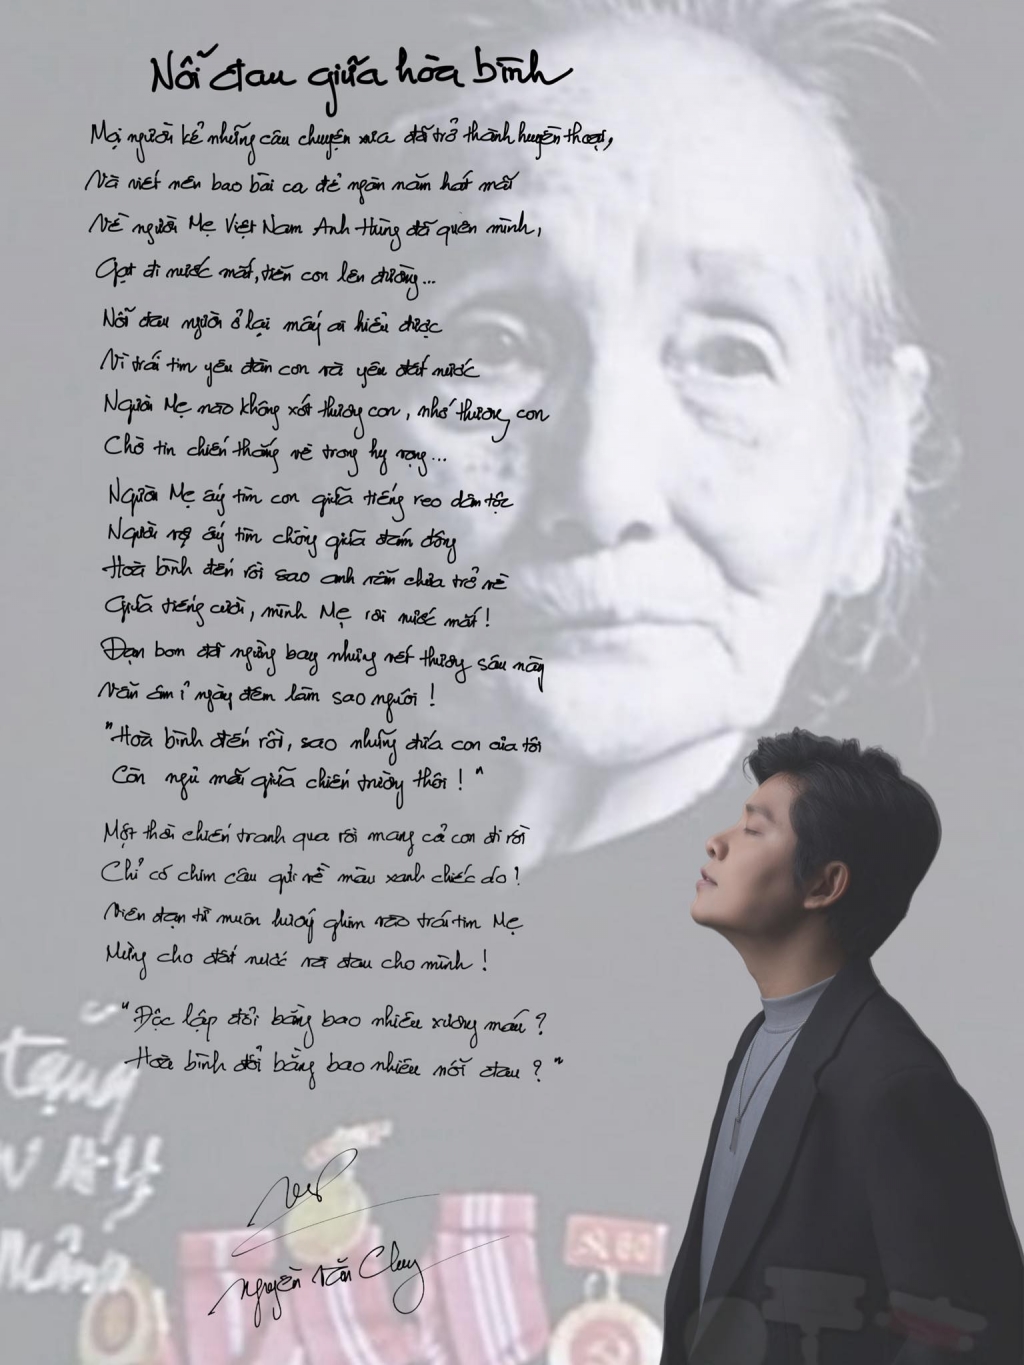 Nỗi đau giữa hòa bình
Mọi người kể những câu chuyện xưa đã trở thành huyền thoại,
Và viết nên bao bài ca để ngàn năm hát mãi
Về người Mẹ Việt Nam Anh Hùng đã quên mình,
Gạt đi nước mắt, tiễn con lên đường...
Nỗi đau người ở lại mấy ai hiểu được
Vì trái tim yêu đàn con và yêu đất nước
Người Mẹ nào không xót thương con, nhớ thương con
Chờ tin chiến thắng về trong hy vọng...
Người Mẹ ấy tìm con giữa tiếng reo dân tộc
Người vợ ấy tìm chồng giữa đám đông
Hoà bình đến rồi sao anh vẫn chưa trở về
Giữa tiếng cười, mình Mẹ rơi nước mắt!
Đạn bom đã ngừng bay nhưng vết thương sâu này
Vẫn âm ỉ ngày đêm làm sao nguôi!
"Hoà bình đến rồi, sao những đứa con của tôi
Còn ngủ mãi giữa chiến trường thôi!"
Một thời chiến tranh qua rồi mang cả con đi rồi
Chỉ có chim câu gửi về màu xanh chiếc áo!
Viên đạn từ muôn hướng ghim vào trái tim Mẹ
Mừng cho đất nước và đau cho mình!
"Độc lập đổi bằng bao nhiêu xương máu?
Hoà bình đổi bằng bao nhiêu nỗi đau?"
Nguyễn Văn Chung
tặng